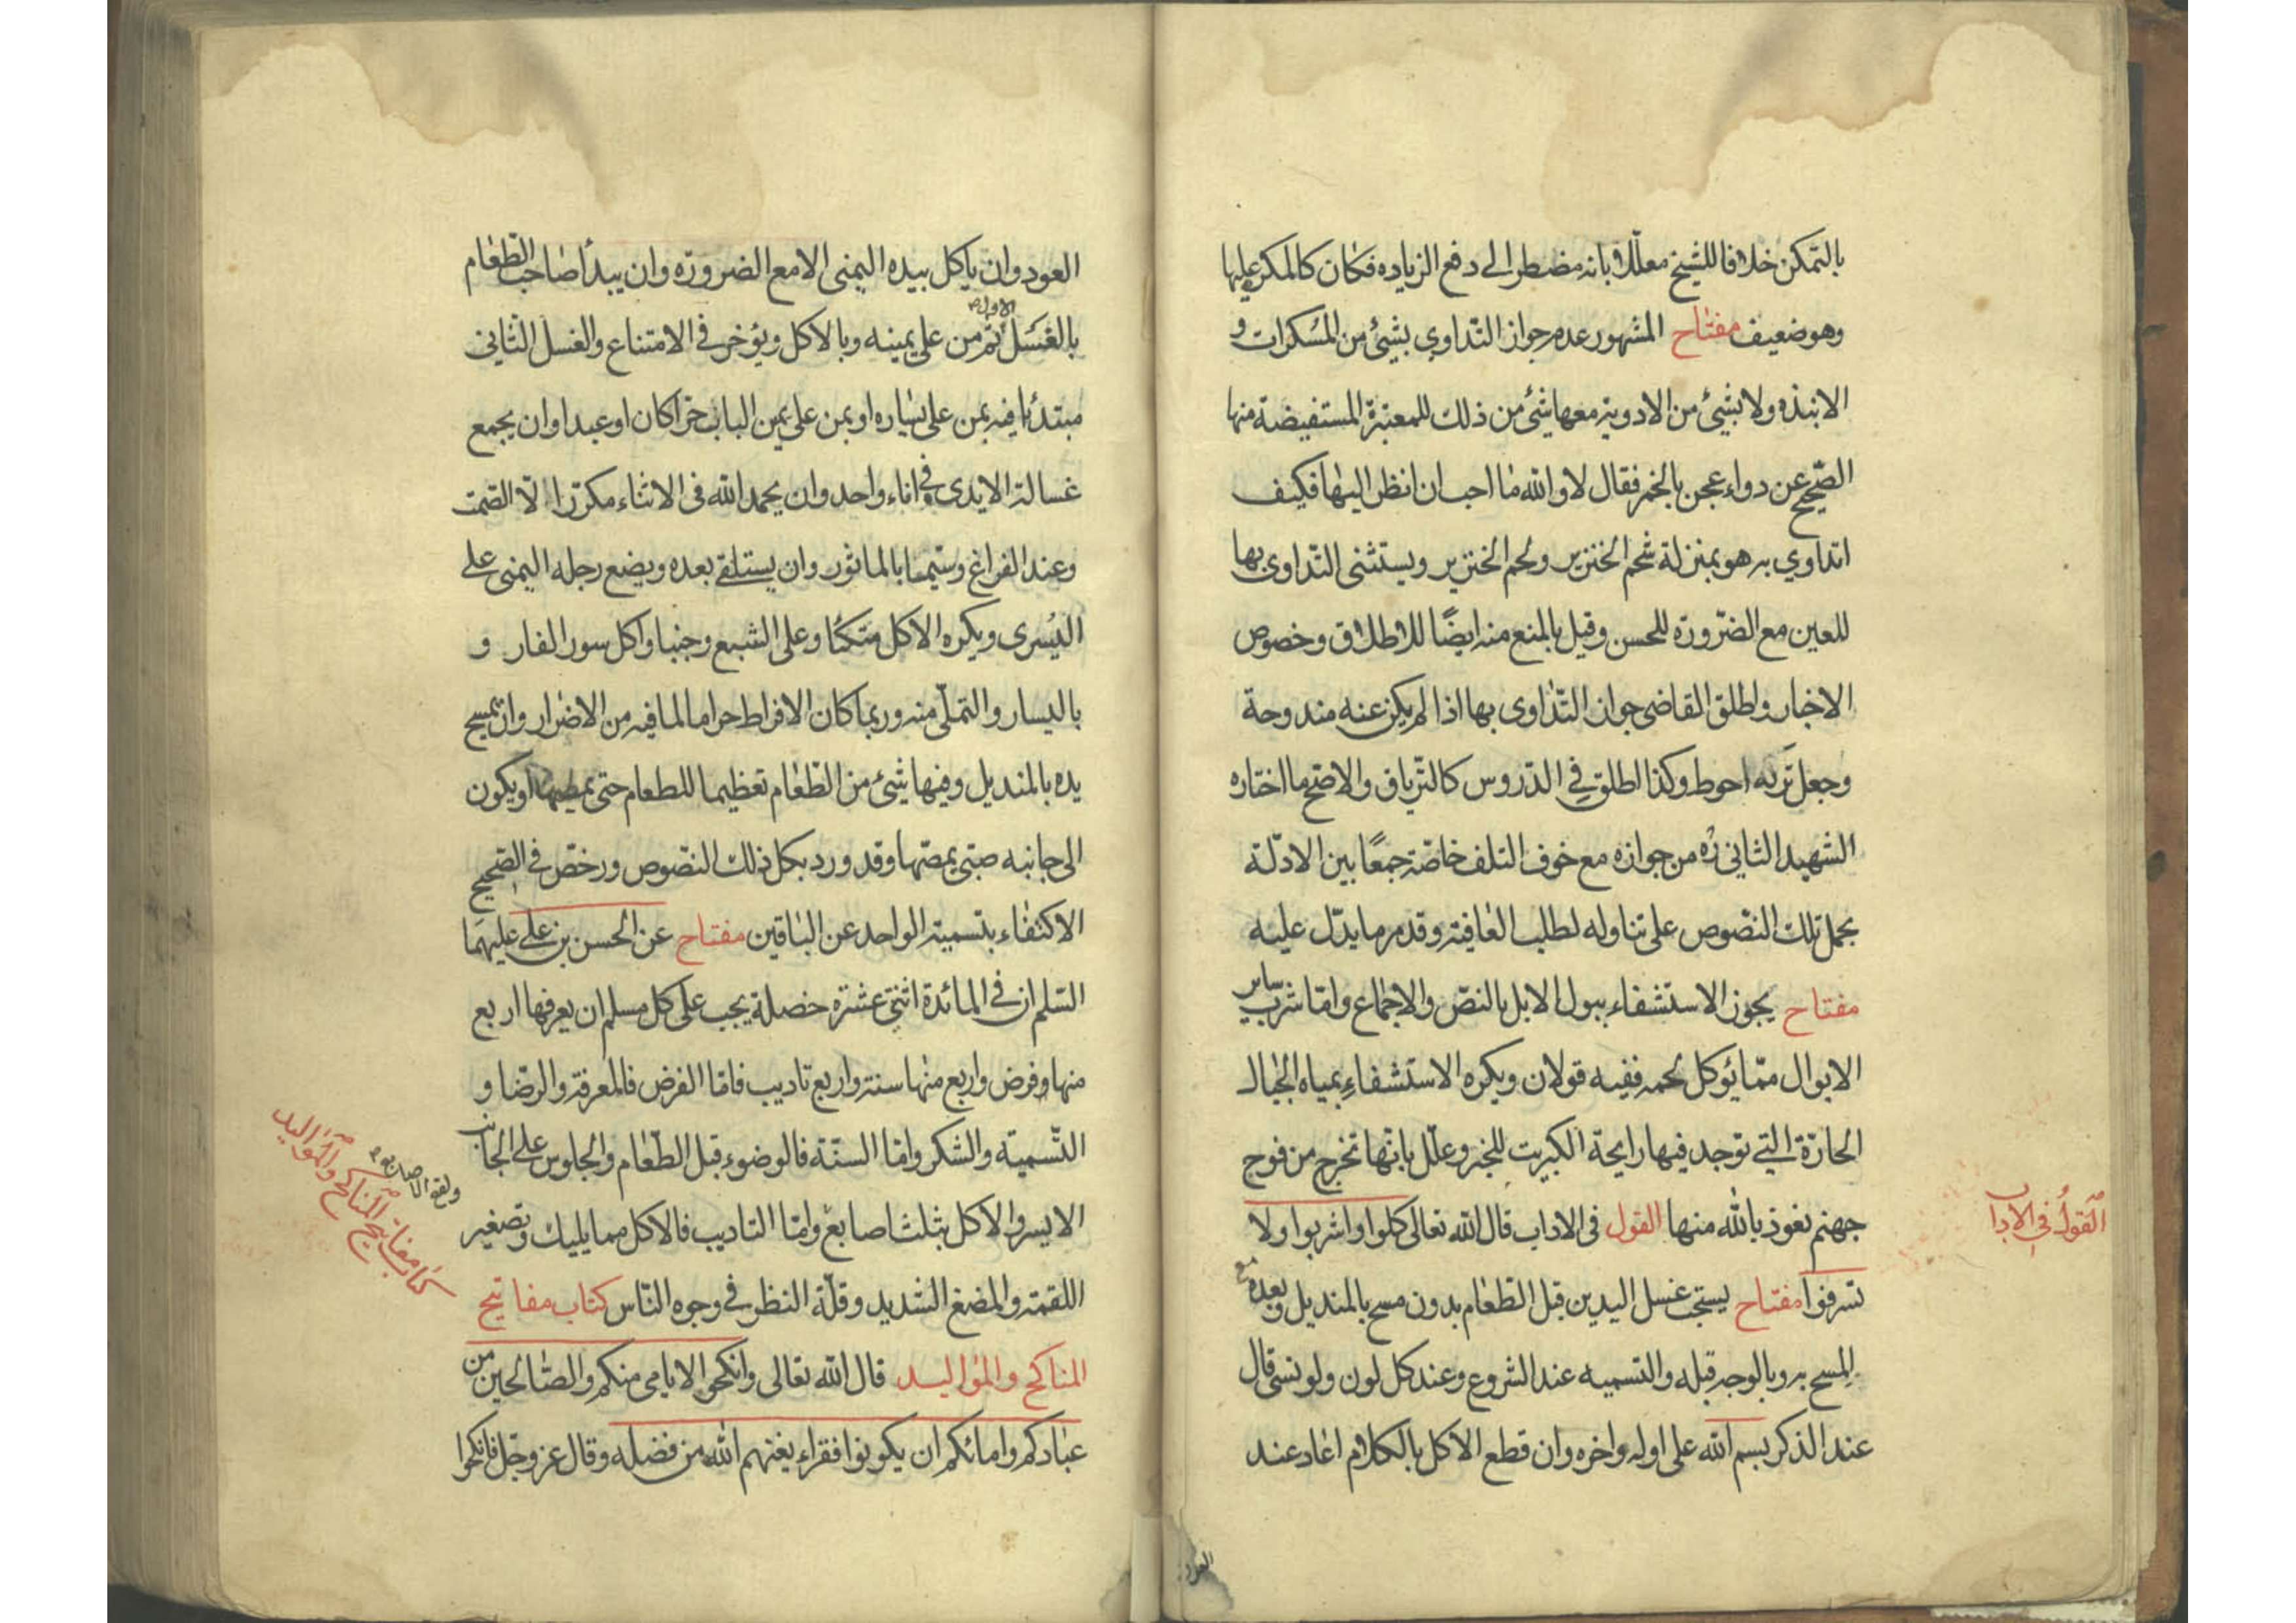 بالتمكن خلافا للشيخ معللا بانه مضطر الى دفع الزياده فكان كالمكره عليها
وهو ضعيف مفتاح المشهور عدم جواز التداوي بشيئ من المسكرات و
الانبذه ولا بشيئ من الادوية معها شئ من ذلك للمعتبرة المستفيضة منها
الصحيح عن دواء عجن بالخمر فقال لا والله ما احب ان انظر اليها فكيف
اتداوي به هو بمنزلة شحم الخنزير ولحم الخنزير ويستثنى التداوى بها
للعين مع الضرورة للحسن وقيل بالمنع منه ايضًا للاطلاق وخصوص
الاخبار واطلق القاضي جواز التداوى بها اذا لم يكن عنه مندوحة
وجعل تركه احوط وكذا اطلق في الدروس كالترياق والاصح ما اختاره
الشهيد الثاني ره من جوازه مع خوف التلف خاصة جمعًا بين الادلة
بحمل تلك النصوص على تناوله لطلب العافية وقد مر ما يدل عليه
مفتاح يجوز الاستشفاء ببول الابل بالنص والاجماع واما شرب ساير
الابوال مما يؤكل لحمه ففيه قولان ويكره الاستشفاء بمياه الجبال
الحارة التي توجد فيها رايحة الكبريت للخبر وعلل بانها تخرج من فوح
جهنم نعوذ بالله منها القول في الاداب قال الله تعالى كلوا واشربوا ولا
تسرفوا مفتاح يستحب غسل اليدين قبل الطعام بدون مسح بالمنديل وبعده مع
المسح به وبالوجه قبله والتسميه عند الشروع وعند كل لون ولو نسى قال
عند الذكر بسم الله على اوله واخره وان قطع الاكل بالكلام اعاد عند
القول في الاداب
العود
العود وان ياكل بيده اليمنى الا مع الضرورة وان يبدأ صاحب الطعام
بالغسل الاول ثم من على يمينه وبالاكل ويؤخر في الامتناع والغسل الثاني
مبتدئا فيه بمن على يساره او بمن على يمين الباب حرا كان او عبدا وان يجمع
غسالة الايدى في اناء واحد وان يحمد الله في الاثناء مكررا لا الصمت
وعند الفراغ وسيما بالماثور وان يستلقى بعده ويضع رجله اليمنى على
اليسرى ويكره الاكل متكئا وعلى الشبع وجنبا واكل سور الفار و
باليسار والتملي منه وربما كان الافراط حراما لما فيه من الاضرار وان يمسح
يده بالمنديل وفيها شئ من الطعام تعظيما للطعام حتى يمصها او يكون
الى جانبه صبى يمصها وقد ورد بكل ذلك النصوص ورخص في الصحيح
الاكتفاء بتسمية الواحد عن الباقين مفتاح عن الحسن بن على عليهما
السلم ان في المائدة اثنتى عشرة خصلة يجب على كل مسلم ان يعرفها اربع
منها فرض واربع منها سنة واربع تاديب فاما الفرض فالمعرفة والرضا و
التسمية والشكر واما السنة فالوضوء قبل الطعام والجلوس على الجانب
الايسر والاكل بثلث اصابع واما التاديب فالاكل مما يليك وتصغير
اللقمة والمضغ الشديد وقلة النظر في وجوه الناس كتاب مفاتيح
المناكح والمواليد قال الله تعالى وانكحوا الايامى منكم والصالحين من
عبادكم وامائكم ان يكونوا فقراء يغنهم الله من فضله وقال عز وجل فانكحوا
ولعق الاصابع
كتاب مفاتيح المناكح والمواليد